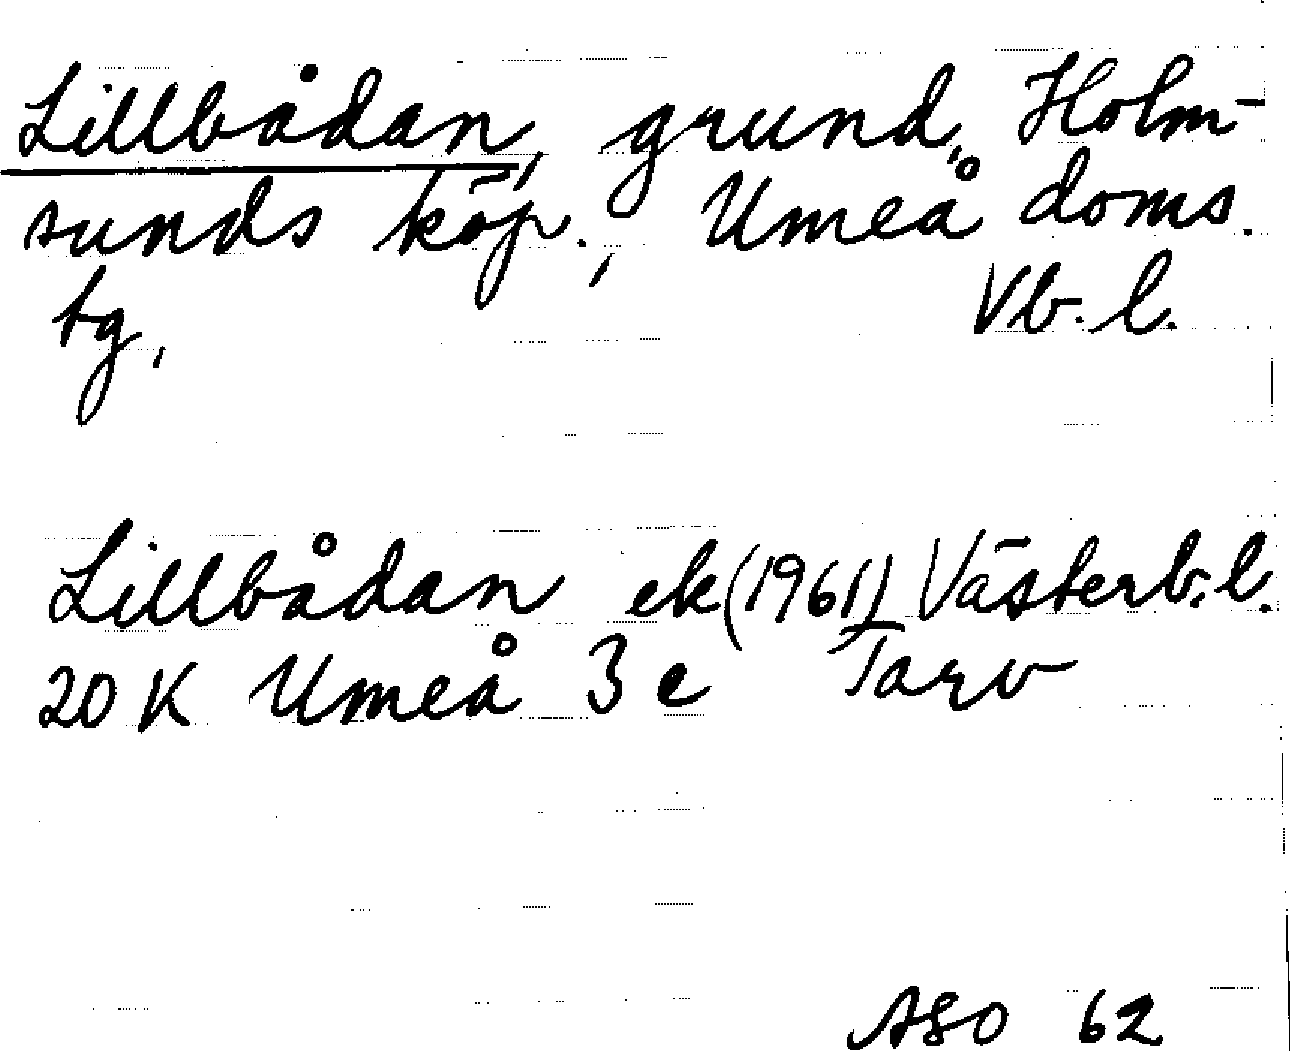 Lillbådan, grund, Holm-
sunds köp., Umeå doms.
tg, Vb. l.
Lillbådan ek (1961) Västerb. l.
20 K Umeå 3 e Tarv
ASO 62